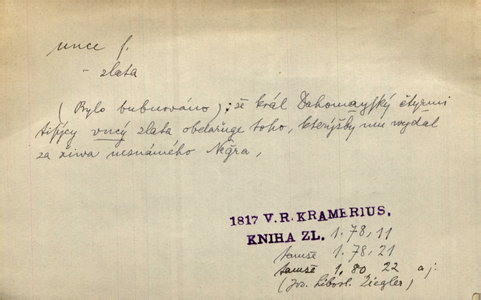 unce f.
- zlata
(Bylo bubnowáno); že král Dahomayský čtyrmi
tisýcy uncý zlata obdařuge toho, kterýžby mu wydal
za žiwa neznámého Negra,
1817 V. R. KRAMERIUS,
KNIHA ZL. 1. 78, 11
tamže 1. 78, 21
tamže 1. 80 22 a j.
(Jos. Liborl. Ziegler)